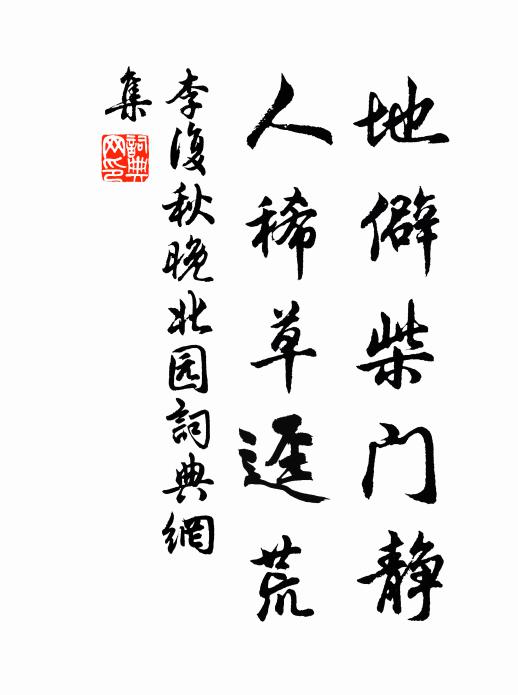 地僻柴门静
人稀草迳荒
李復秋晚北园詞典網
集
詞典网印